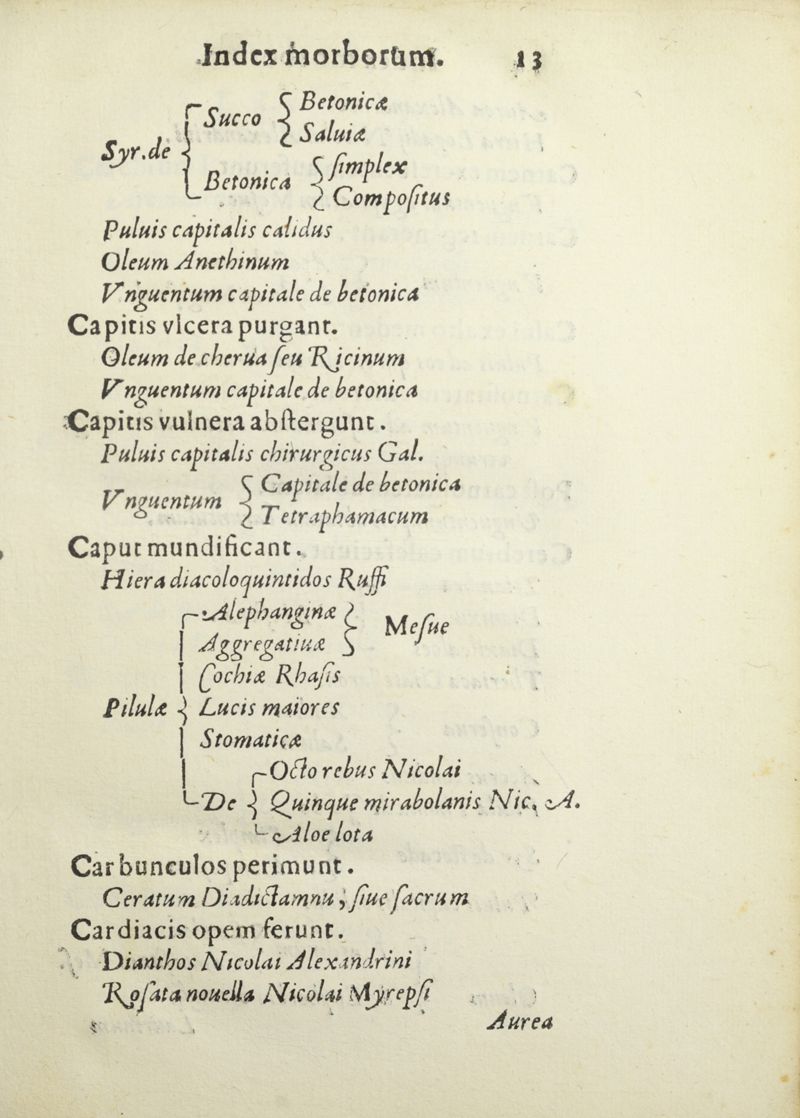 Index morborum. 13
Succo { Betonicæ
Saluiæ
Syr.de {
Betonica { ſimplex
Compoſitus
Puluis capitalis calidus
Oleum Anethinum
Vnguentum capitale de betonica
Capitis vlcera purgant.
Oleum de cherua ſeu Ricinum
Vnguentum capitale de betonica
Capitis vulnera abſtergunt.
Puluis capitalis chirurgicus Gal.
Vnguentum { Capitale de betonica
Tetraphamacum
Caput mundificant.
Hiera diacoloquintidos Ruffi
Alephanginæ } Meſue
Aggregatiuæ
Cochiæ Rhaſis
Pilulæ { Lucis maiores
Stomaticæ
Octo rebus Nicolai
De { Quinque mirabolanis Nic. A.
Aloe lota
Carbunculos perimunt.
Ceratum Diadictamnu, ſiue ſacrum
Cardiacis opem ferunt.
Dianthos Nicolai Alexandrini
Roſata nouella Nicolai Myrepſi
Aurea